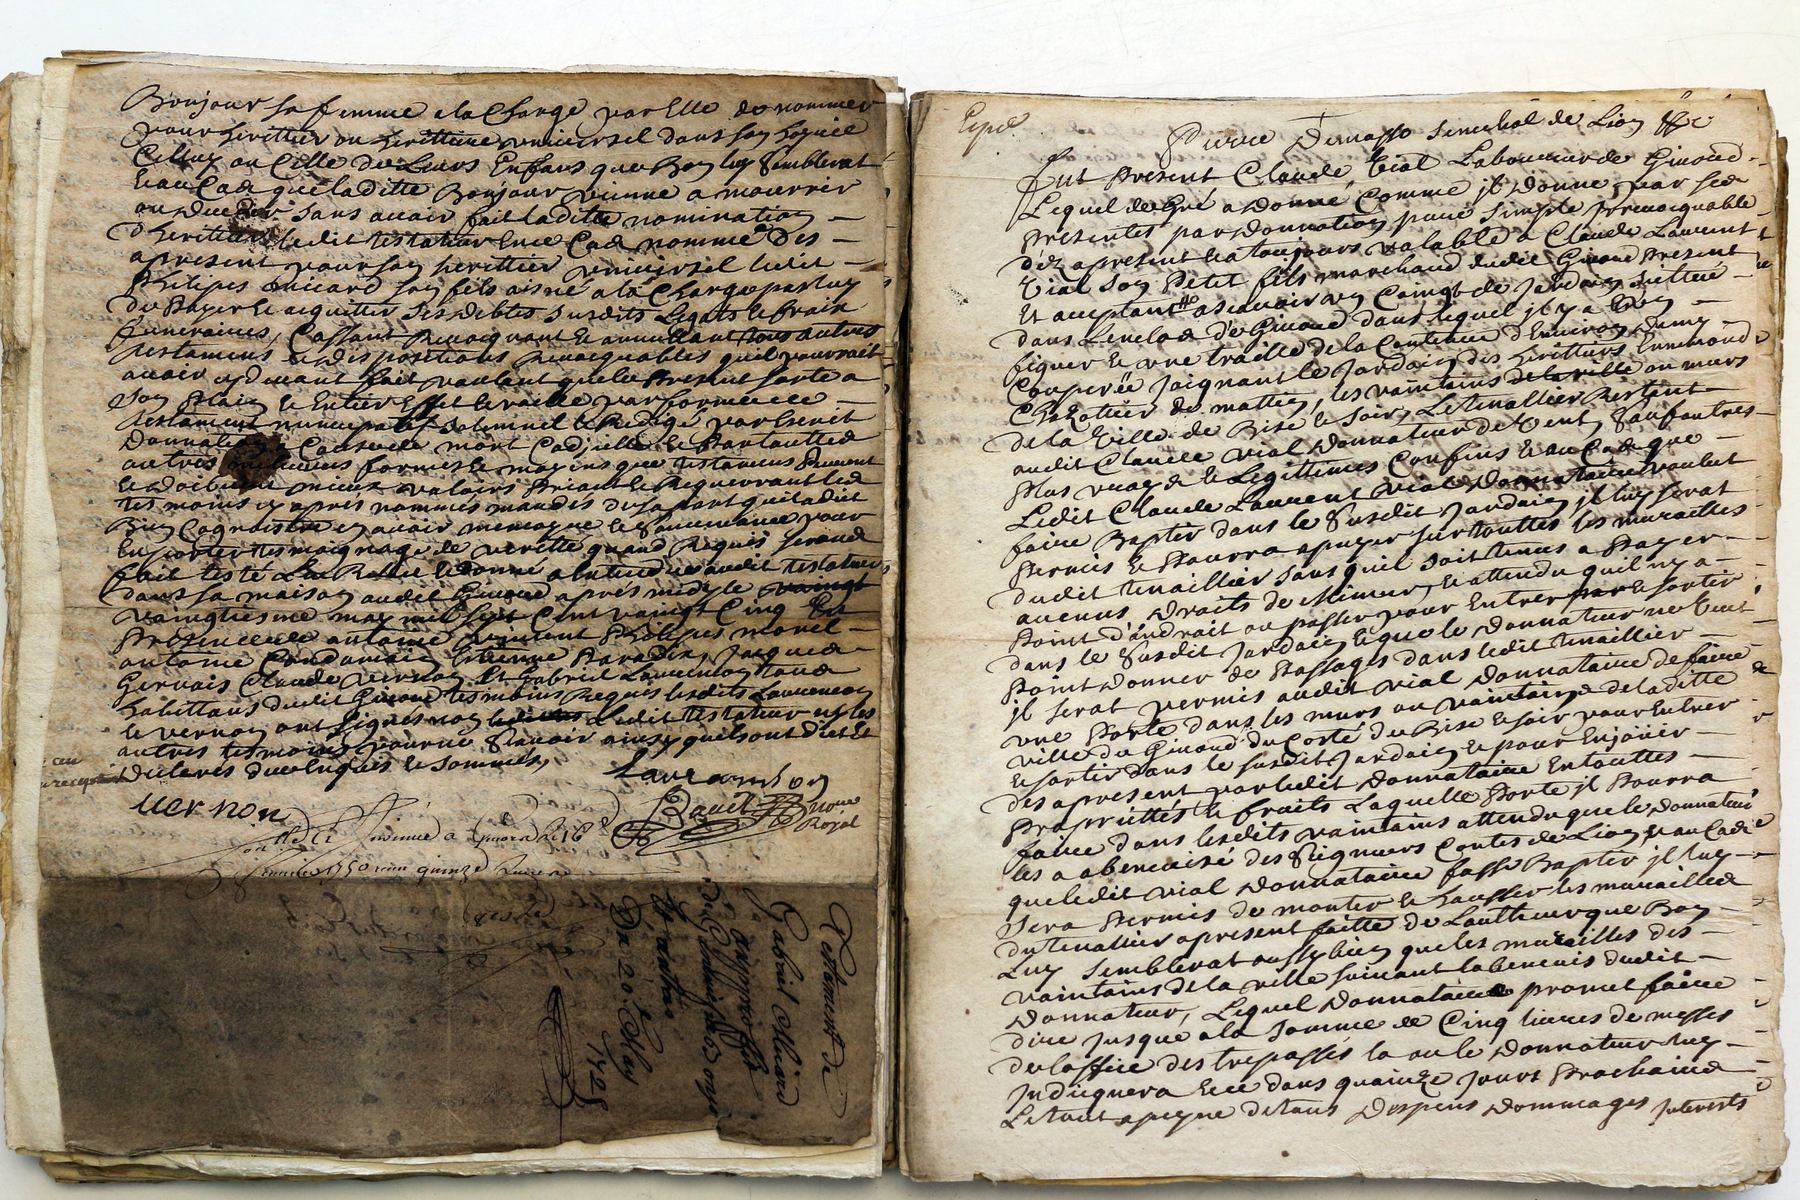 Bonjour sa femme a la Charge par Elle de nommer
pour herittier ou herittiere universel dans son hoirie
Celluy ou Celle de Leurs Enfans que Bon luy Semblerat
Et au Cas que laditte Bonjour vienne a mourrir
ou sans avoir fait laditte nomination
d'herittier ledit testateur En ce Cas nomme des
apresent pour son herittier universel ledit
Philipes son fils aisné a la Charge par luy
de Payer et acquitter ses debtes susdits Legats et fraix
funeraires, Cassant Revocquant et annullant tous autres
testamens et dispositions Revocquables quil pourrait
avoir cy devant fait voulant que le Present sorte a
son Plain et Entier Effet et vaille par forme de
testament nuncupatif solemnel et Redigé par Escrit
Donnation a Cause de mort Codicille et Par touttes
autres formes et moyens que testamens Peuvent
et doivent mieux valoirs Priant et Requerrant les
tes moins cy aprés nommés mandés de sa part quil a dit
Bien Cognoistre en avoir memoyre et Souvenance pour
En porter tesmoignage de verité quand Requis seront
fait testé Leu Relu et donné a Entendre audit testateur
dans sa maison audit Givord aprés midy le
vaingtiesme may mil sept Cent vaingt Cinq En
Presence de antoine Philipes morel
antoine Condamain Estienne Paradix, Jacques
Gervais Claude vernon Et Gabriel Laurençon tous
habittans dudit Givord tesmoins Requis lesdits Laurençon
et vernon ont signés non Ledit testateur ny les
autres tesmoins pour ne sçavoir ainsy quils ont dit et
declarés de ce Enquis et Sommés,
Laurançon
uernon
noire
Royal
a Givors le 16e
1750 quinze
Testament de
Gabriel
Du 20e May
1725
Expé
Pierre Dumasso senechal de Lion
fut Present Claude Vial Laboureur de Givord
Lequel de Gré a Donné Comme il donne par ses
Presentes par donnation pure simple Irrevocquable
déz apresent et a toujours valable a Claude Laurent
Vial son Petit fils marchand dudit Givord Present
Et acceptant asçavoir un Coingt de Jardain scittué
dans Lenclos de Givord dans lequel il y a Un
figuier et une traille de la Contenue d'Environ demy
Couperée Joignant le Jardain des herittiers Ennemond
Chazottier de mattin, les vaintains de la ville ou murs
de la Ville de Bise et soir, Le tinallier Restant
audit Claude Vial donnateur de Vent Sauf autres
Plus vrays et Legittimes Confins Et au Cas que
Ledit Claude Laurent Vial Donnataire voulut
faire Baptir dans le Susdit Jardain il luy serat
Permis et Pourra apuyer sur touttes les murailles
dudit tinaillier sans quil soit tenus a Payer
aucuns droits de Mimur, et attendu quil ny a
Point d'androit ou passer pour Entrer et sortir
dans le Susdit Jardain et que le Donnateur ne veut
Point donner de Passages dans ledit tinaillier
il serat permis audit Vial Donnataire de faire
une Porte dans les murs ou vaintains de laditte
ville de Givord du Costé de Bise et soir pour Entrer
et sortir dans le susdit Jardain et pour En Jouir
des apresent par ledit Donnataire En touttes
Proprietés et fruits Laquelle Porte il Pourra
faire dans lesdits vaintains attendu que le donnateur
les a abeneuisé des Seigneurs Contes de Lion et au Cas
que ledit Vial Donnataire fasse Baptir il luy
sera Permis de monter et hausser les murailles
du tinallier apresent faitte de Lautheur que Bon
Luy Semblerat aussy bien que les murailles des
vaintains de la ville suivant labeneuis dudit
Donnateur, Lequel Donnataire promet faire
dire Jusque a la Somme de Cinq livres de messes
de loffice des trepassés la ou le Donnateur luy
Indicquera Et ce dans quainze Jours Prochains
Le tout a peyne de tous Despens Dommages Interests